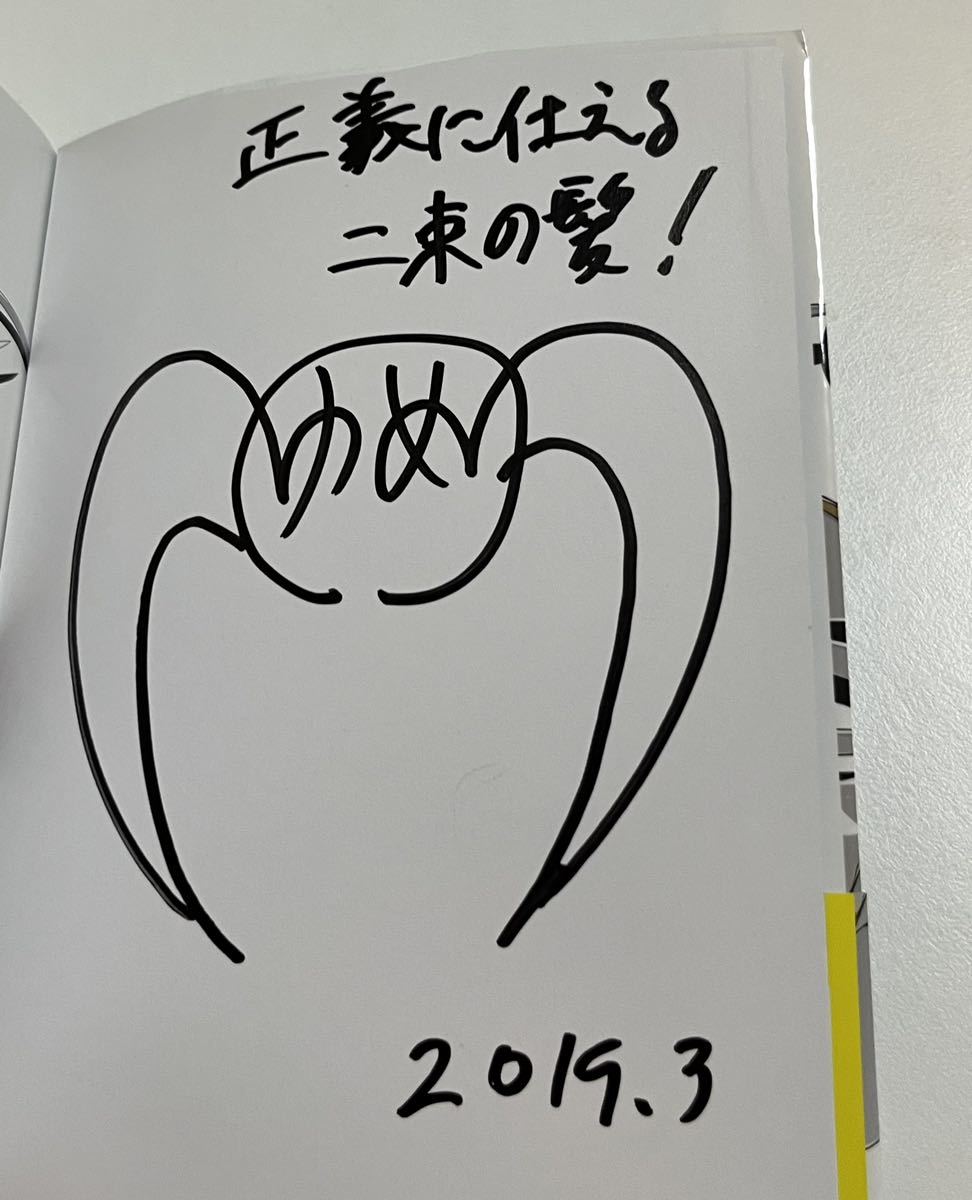 正義に仕える
二束の髪!
ゆめ
2019.3